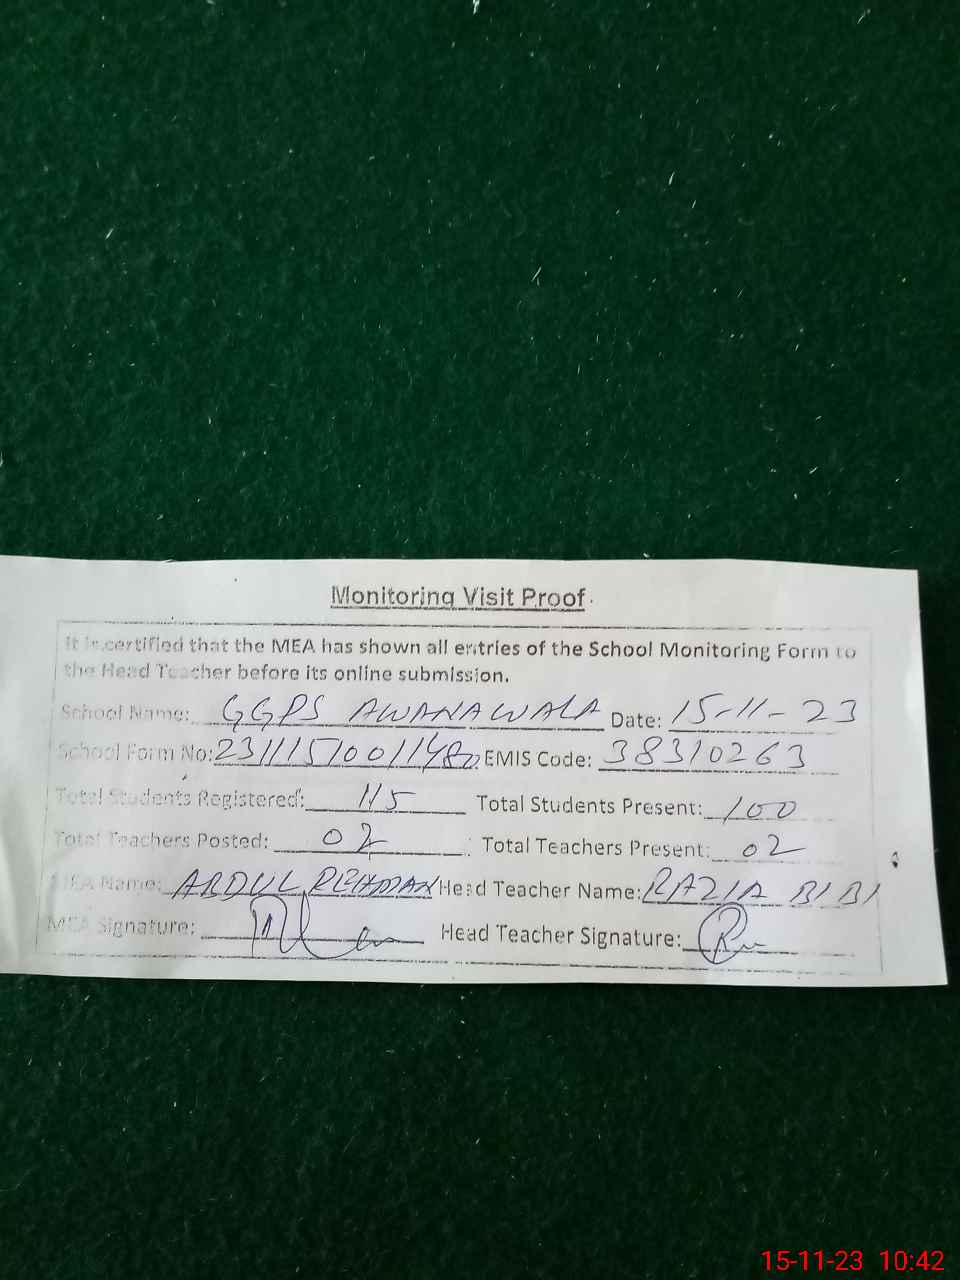 Monitoring Visit Proof
It is certified that the MEA has shown all entries of the School Monitoring Form to
the Head Teacher before its online submission.
School Name: GGPS AWANAWALA Date: 15-11-23
School Form No: EMIS Code: 38310263
Total Students Registered: 115 Total Students Present: 100
Total Teachers Posted: 02 Total Teachers Present: 02
MEA Name: ABDUL REHMAN Head Teacher Name: RAZIA BIBI
MEA Signature: Head Teacher Signature:
15-11-23 10:42